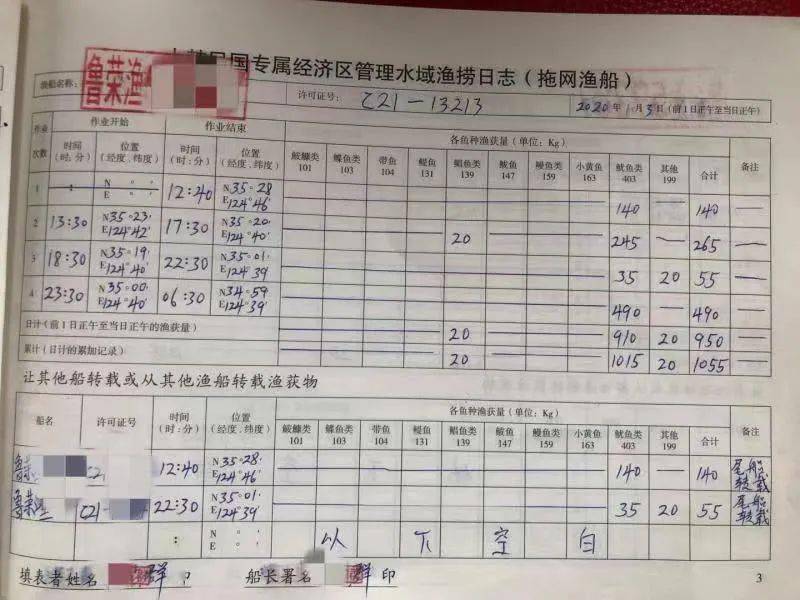 鲁荣渔
大韩民国专属经济区管理水域渔捞日志（拖网渔船）
渔船名称: 许可证号: C21-13213 2020年1月3日(前1日正午至当日正午)
作业次数 作业开始 作业结束 各鱼种渔获量（单位: Kg） 备注
时间(时:分) 位置(经度、纬度) 时间(时:分) 位置(经度、纬度) 鮟鱇类101 鲽鱼类103 带鱼104 鳀鱼131 鲳鱼类139 鲅鱼147 鳗鱼类159 小黄鱼163 鱿鱼类403 其他199 合计
1 : N ° ′ E ° ′ 12:40 N35°28 E124°46′ 140 — 140 —
2 13:30 N35°23′ E124°42′ 17:30 N35°20′ E124°40′ 20 245 — 265 —
3 18:30 N35°19′ E124°40′ 22:30 N35°01′ E124°39 35 20 55 —
4 23:30 N35°00′ E124°40′ 06:30 N34°59 E124°39′ 490 — 490 —
日计（前1日正午至当日正午的渔获量） 20 910 20 950 —
累计（日计的累加记录） 20 1015 20 1055 —
让其他船转载或从其他渔船转载渔获物
船名 许可证号 时间(时:分) 位置(经度、纬度) 各鱼种渔获量（单位: Kg） 备注
鮟鱇类101 鲽鱼类103 带鱼104 鳀鱼131 鲳鱼类139 鲅鱼147 鳗鱼类159 小黄鱼163 鱿鱼类403 其他199 合计
鲁荣 C21- 12:40 N35°28′ E124°46′ 140 — 140 尾船转载
鲁荣 C21- 22:30 N35°01 E124°39′ 35 20 55 尾船转载
: N ° ′ E ° ′ 以 下 空 白
填表者姓名 群 船长署名 群 印
3